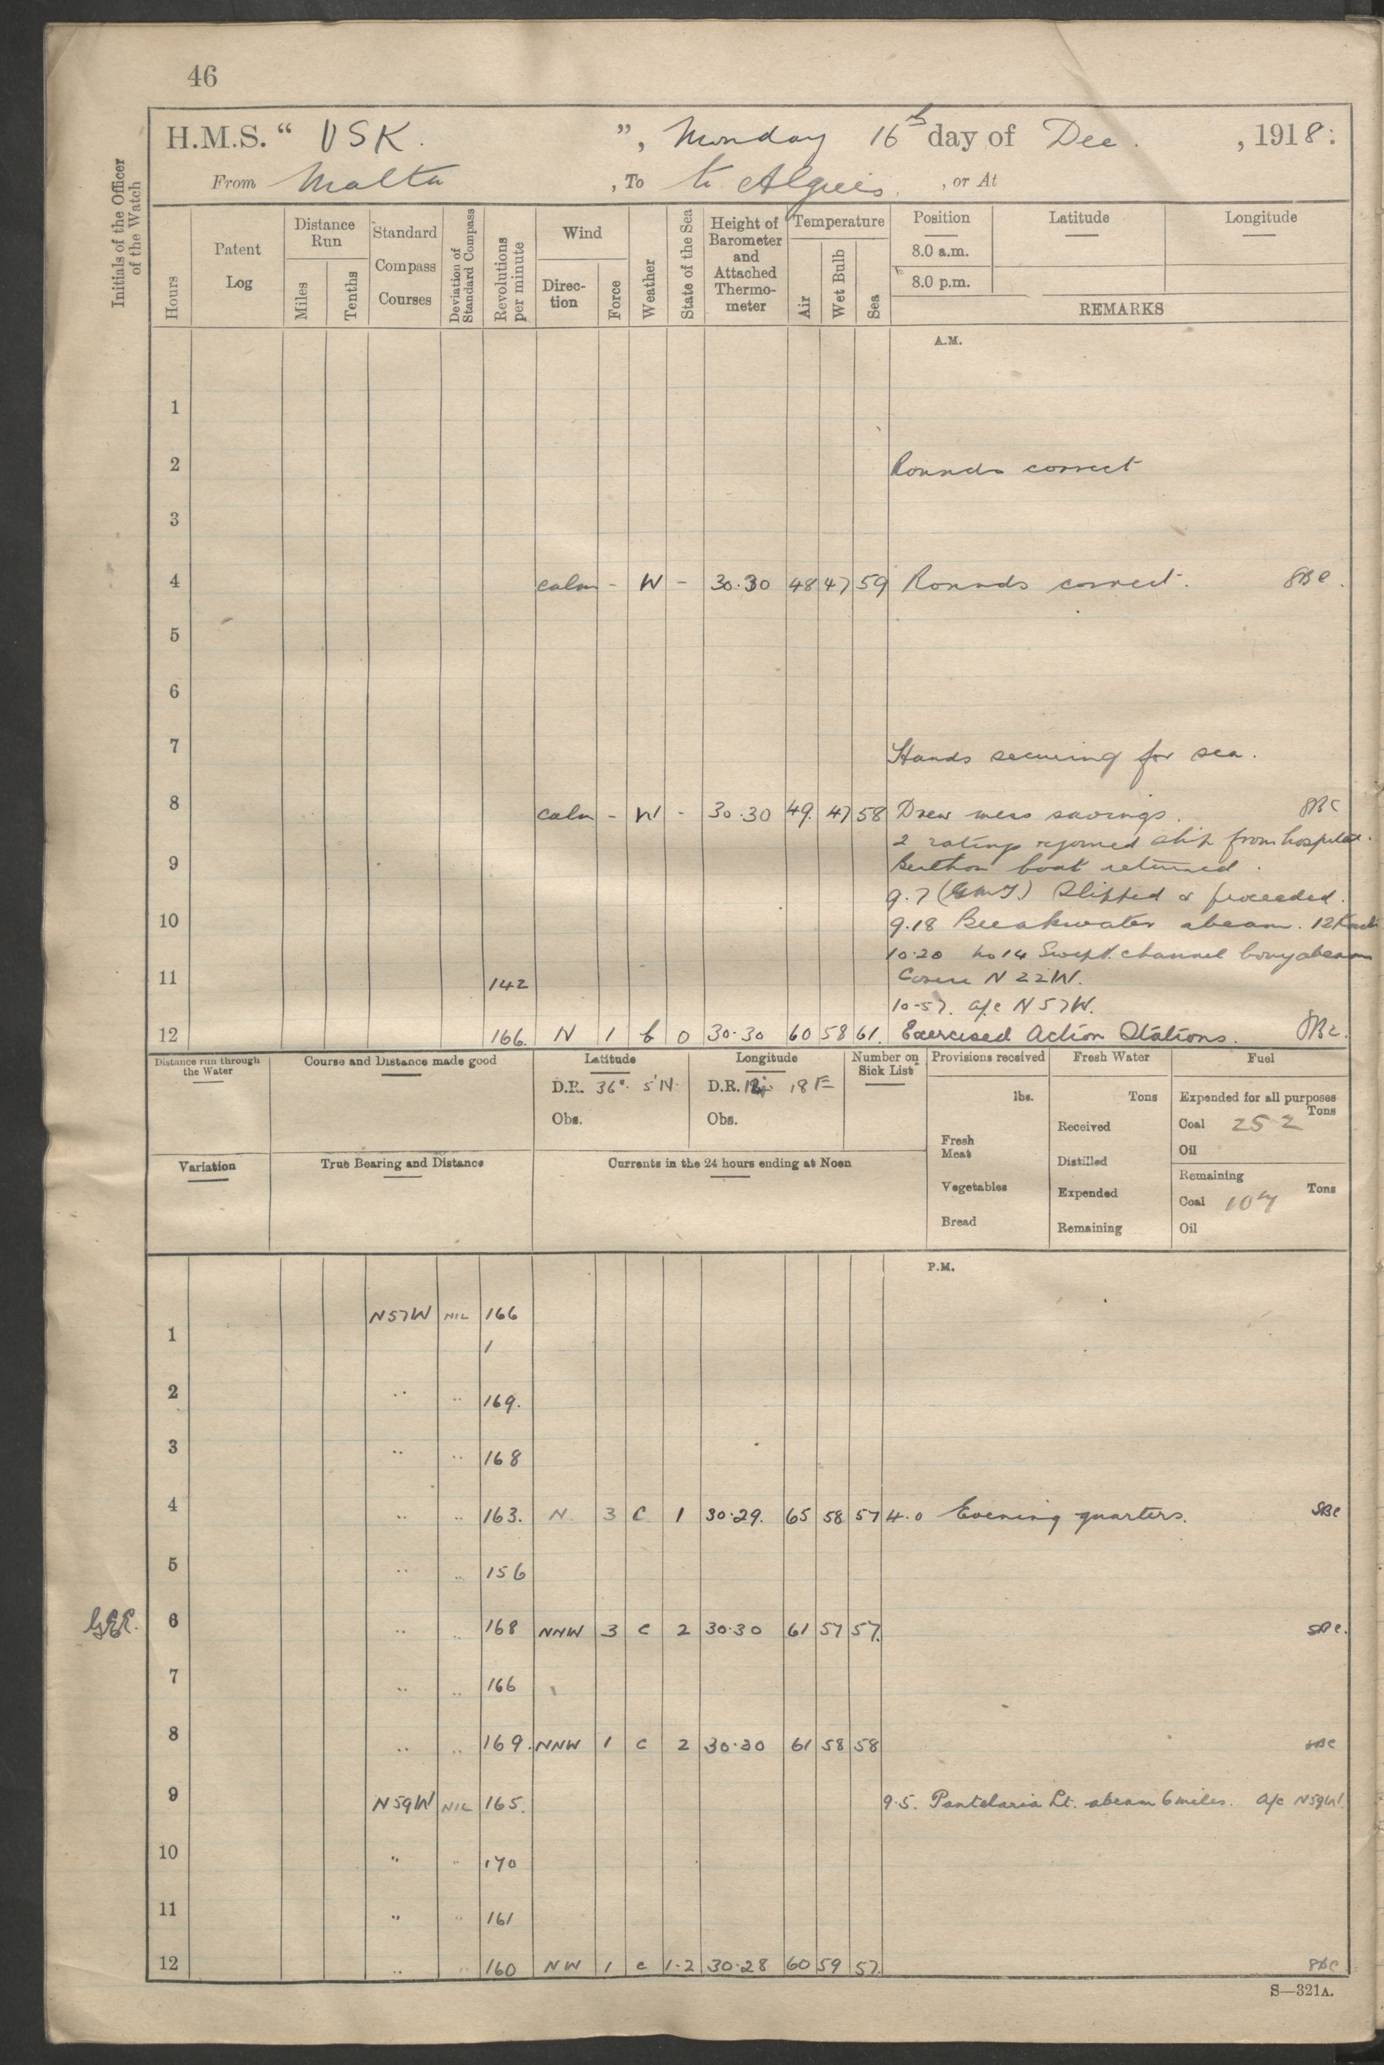 46
H.M.S. “ USK. ”, Monday 16th day of Dec. , 1918:
From Malta , To to Algiers. , or At
Initials of the Officer of the Watch
Hours
Patent Log
Distance Run
Miles
Tenths
Standard Compass Courses
Deviation of Standard Compass
Revolutions per minute
Wind
Direction
Force
Weather
State of the Sea
Height of Barometer and Attached Thermometer
Temperature
Air
Wet Bulb
Sea
Position Latitude Longitude
8.0 a.m.
8.0 p.m.
REMARKS
A.M.
1
2 Rounds correct
3
4 calm - W - 30.30 48 47 59 Rounds correct. SBC.
5
6
7 Hands securing for sea.
8 calm - W - 30.30 49. 47 58 Drew mess savings. SBC
2 ratings rejoined ship from hospital.
9 Berthon boat returned.
9.7 (GMT) Slipped & proceeded.
10 9.18 Breakwater abeam. 12 Knots
10.20 No 14 Swept channel buoy abeam
11 142 Course N 22 W.
10-57. a/c N 57 W.
12 166. N 1 b 0 30.30 60 58 61. Exercised Action Stations. SBC.
Distance run through the Water
Course and Distance made good
Latitude
D.R. 36°. 5'N.
Obs.
Longitude
D.R. 18 E
Obs.
Number on Sick List
Provisions received
lbs.
Fresh Meat
Vegetables
Bread
Fresh Water
Tons
Received
Distilled
Expended
Remaining
Fuel
Expended for all purposes
Tons
Coal 25.2
Oil
Remaining
Tons
Coal 107
Oil
Variation
True Bearing and Distance
Currents in the 24 hours ending at Noon
P.M.
1 N57W NIL 166
1
2 .. .. 169.
3 .. .. 168
4 .. .. 163. N 3 C 1 30.29. 65 58 57 4.0 Evening quarters. SBC
5 .. .. 156
6 .. .. 168 NNW 3 C 2 30.30 61 57 57. SBC.
7 .. .. 166
8 .. .. 169. NNW 1 C 2 30.30 61 58 58 SBC
9 N59W NIL 165. 9.5. Pantelaria Lt. abeam 6 miles. a/c N59W.
10 .. .. 170
11 .. .. 161
12 .. .. 160 NW 1 c 1.2 30.28 60 59 57. SBC
S—321A.